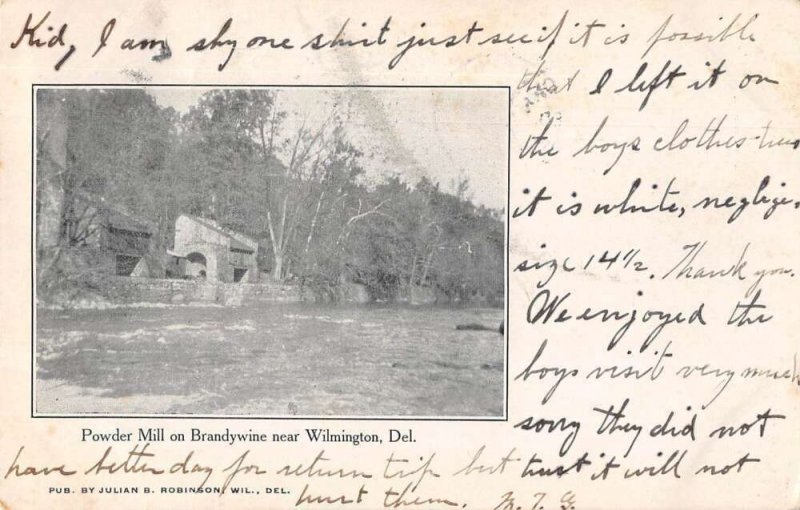 Kid, I am shy one shirt just see if it is possible
that I left it on
the boys clothes-tree
it is white, neglige,
size 14½. Thank you.
We enjoyed the
boys visit very much
sorry they did not
have better day for return trip but trust it will not
hurt them. M. T. G.
Powder Mill on Brandywine near Wilmington, Del.
PUB. BY JULIAN B. ROBINSON, WIL., DEL.